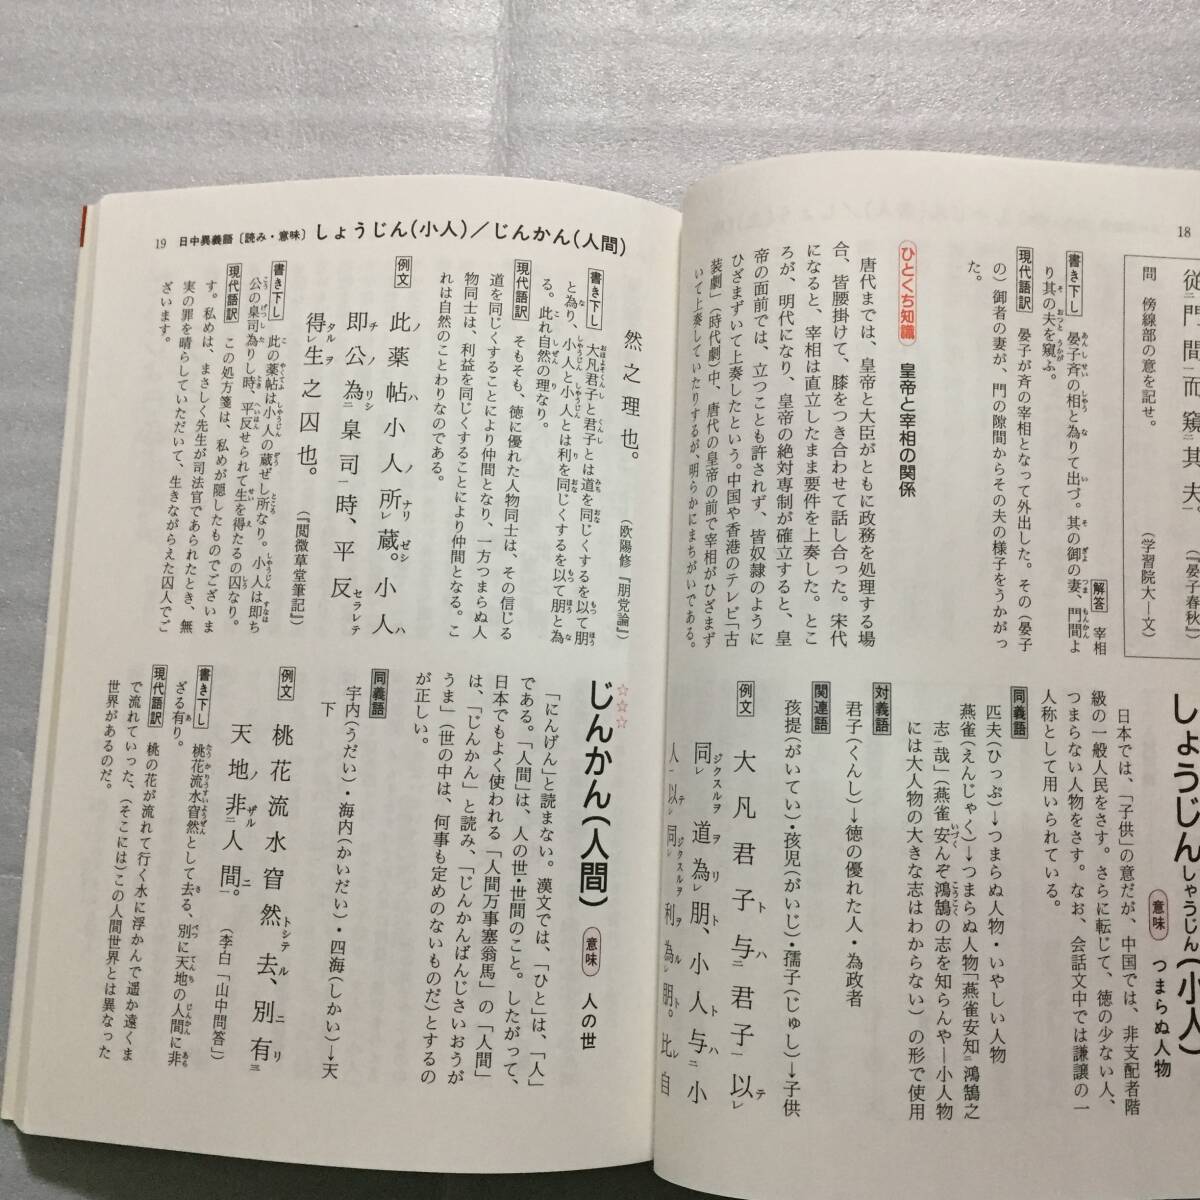 18
従門間而窺其夫。
（『晏子春秋』）
問　傍線部の意を記せ。
（学習院大―文）
解答　宰相
書き下し　晏子斉の相と為りて出づ。其の御の妻、門間よ
り其の夫を窺ふ。
現代語訳　晏子が斉の宰相となって外出した。その（晏子
の）御者の妻が、門の隙間からその夫の様子をうかがっ
た。
ひとくち知識　皇帝と宰相の関係
唐代までは、皇帝と大臣がともに政務を処理する場
合、皆腰掛けて、膝をつき合わせて話し合った。宋代
になると、宰相は直立したまま要件を上奏した。とこ
ろが、明代になり、皇帝の絶対専制が確立すると、皇
帝の面前では、立つことも許されず、皆奴隷のように
ひざまずいて上奏したという。中国や香港のテレビ「古
装劇」（時代劇）中、唐代の皇帝の前で宰相がひざまず
いて上奏していたりするが、明らかにまちがいである。
しょうじんしゃうじん（小人）
意味　つまらぬ人物
日本では、「子供」の意だが、中国では、非支配者階
級の一般人民をさす。さらに転じて、徳の少ない人、
つまらない人物をさす。なお、会話文中では謙譲の一
人称として用いられている。
同義語
匹夫（ひっぷ）→つまらぬ人物・いやしい人物
燕雀（えんじゃく）→つまらぬ人物「燕雀安知二鴻鵠之
志一哉」（燕雀安んぞ鴻鵠の志を知らんや―小人物
には大人物の大きな志はわからない）の形で使用
対義語
君子（くんし）→徳の優れた人・為政者
関連語
孩提（がいてい）・孩児（がいじ）・孺子（じゅし）→子供
例文
大凡君子ト与ハ二君子一以テレ
同ジクスルヲレ道ヲ為リレ朋ト、小人ト与ハ二小
人一以テレ同ジクスルヲレ利ヲ為ルレ朋ト。此レ自
19　日中異義語〔読み・意味〕しょうじん（小人）／じんかん（人間）
然之理也。
（欧陽修『朋党論』）
書き下し　大凡君子と君子とは道を同じくするを以て朋
と為り、小人と小人とは利を同じくするを以て朋と為
る。此れ自然の理なり。
現代語訳　そもそも、徳に優れた人物同士は、その信じる
道を同じくすることにより仲間となり、一方つまらぬ人
物同士は、利益を同じくすることにより仲間となる。こ
れは自然のことわりなのである。
例文
此ノ薬帖ハ小人ノ所ナリレ蔵ゼシ。小人ハ
即チ公ノ為リシ二臬司一時、平反セラレテ
得タルヲレ生之囚也。
（『閲微草堂筆記』）
書き下し　此の薬帖は小人の蔵ぜし所なり。小人は即ち
公の臬司為りし時、平反せられて生を得たるの囚なり。
現代語訳　この処方箋は、私めが隠したものでございま
す。私めは、まさしく先生が司法官であられたとき、無
実の罪を晴らしていただいて、生きながらえた囚人でご
ざいます。
☆☆☆
じんかん（人間）　意味　人の世
「にんげん」と読まない。漢文では、「ひと」は、「人」
である。「人間」は、人の世・世間のこと。したがって、
日本でもよく使われる「人間万事塞翁馬」の「人間」
は、「じんかん」と読み、「じんかんばんじさいおうが
うま」（世の中は、何事も定めのないものだ）とするの
が正しい。
同義語
宇内（うだい）・海内（かいだい）・四海（しかい）→天
下
例文
桃花流水窅然トシテ去ル、別ニ有リ三
天地ノ非ザル二人間ニ一。
（李白「山中問答」）
書き下し　桃花流水窅然として去る、別に天地の人間に非
ざる有り。
現代語訳　桃の花が流れて行く水に浮かんで遥か遠くま
で流れていった、（そこには）この人間世界とは異なった
世界があるのだ。